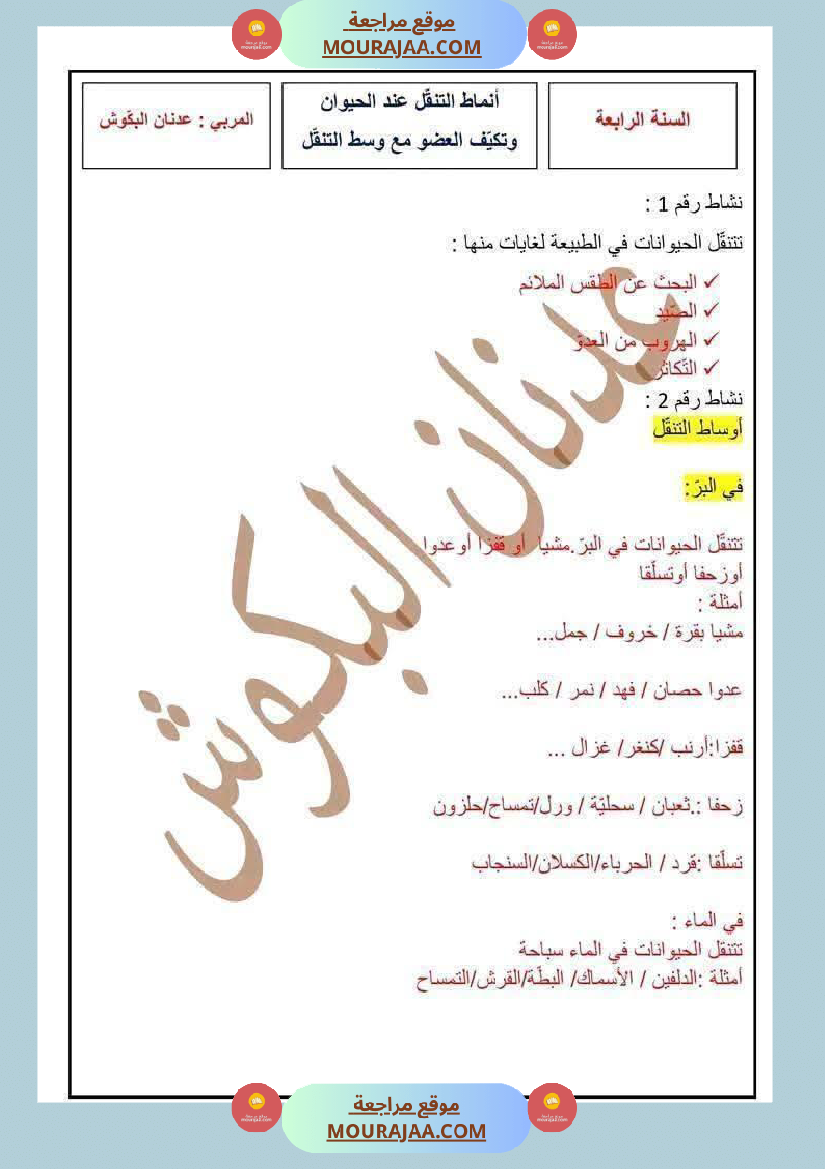 موقع مراجعة
MOURAJAA.COM
السنة الرابعة
أنماط التنقّل عند الحيوان
وتكيّف العضو مع وسط التنقّل
المربي : عدنان البكّوش
نشاط رقم 1 :
تتنقّل الحيوانات في الطبيعة لغايات منها :
✓ البحث عن الطقس الملائم
✓ الصّيد
✓ الهروب من العدوّ
✓ التّكاثر
نشاط رقم 2 :
أوساط التنقّل
في البرّ:
تتنقّل الحيوانات في البرّ.مشيا أو قفزا أوعدوا
أوزحفا أوتسلّقا
أمثلة :
مشيا بقرة / خروف / جمل...
عدوا حصان / فهد / نمر / كلب...
قفزا:أرنب /كنغر/ غزال ...
زحفا :.ثعبان / سحليّة / ورل/تمساح/حلزون
تسلّقا :قرد / الحرباء/الكسلان/السنجاب
في الماء :
تتنقل الحيوانات في الماء سباحة
أمثلة :الدلفين / الأسماك/ البطّة/القرش/التمساح
عدنان البكوش
موقع مراجعة
MOURAJAA.COM